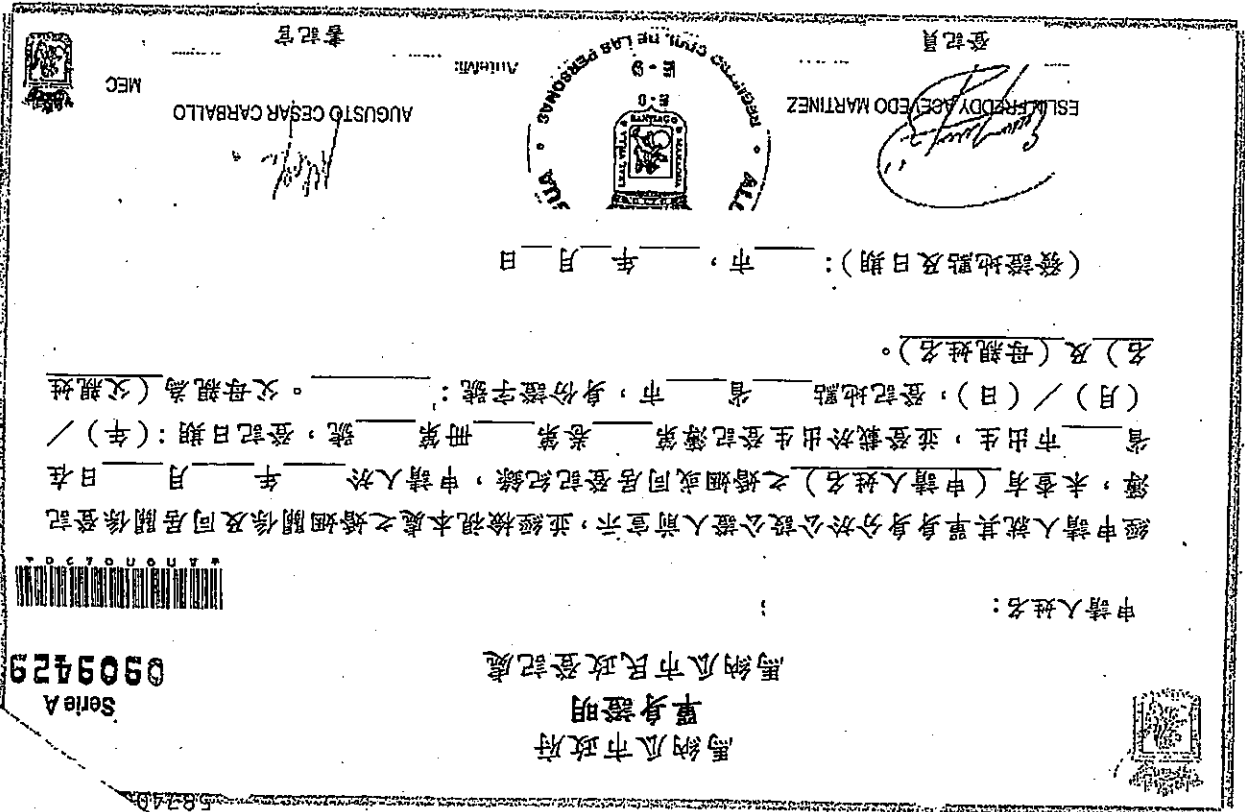 58740
馬納瓜市政府
單身證明
馬納瓜市民政登記處
Serie A
0909429
申請人姓名：
經申請人就其單身身分於公設公證人前宣示，並經檢視本處之婚姻關係及同居關係登記
簿，未查有（申請人姓名）之婚姻或同居登記紀錄，申請人於____年____月____日在
____省____市出生，並登載於出生登記簿第____卷第____冊第____號，登記日期：（年）／
（月）／（日），登記地點____省____市，身份證字號：________。父母親為（父親姓
名）及（母親姓名）。
（發證地點及日期）：____市，____年__月__日
ESLY FREDDY ACEVEDO MARTINEZ
登記員
REGISTRO CIVIL DE LAS PERSONAS
LEAL VILLA
SANTIAGO
MANAGUA
AUGUSTO CESAR CARBALLO
AnteMi:
書記官
MEC